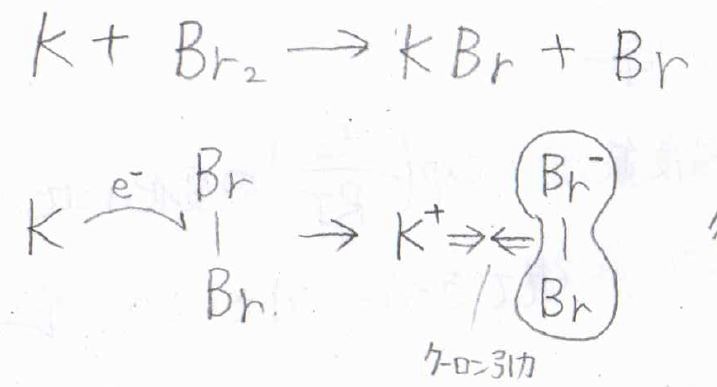 K + Br₂ → KBr + Br
e⁻ Br
K → K⁺ ⇒⇐ Br⁻
Br Br
クーロン引力